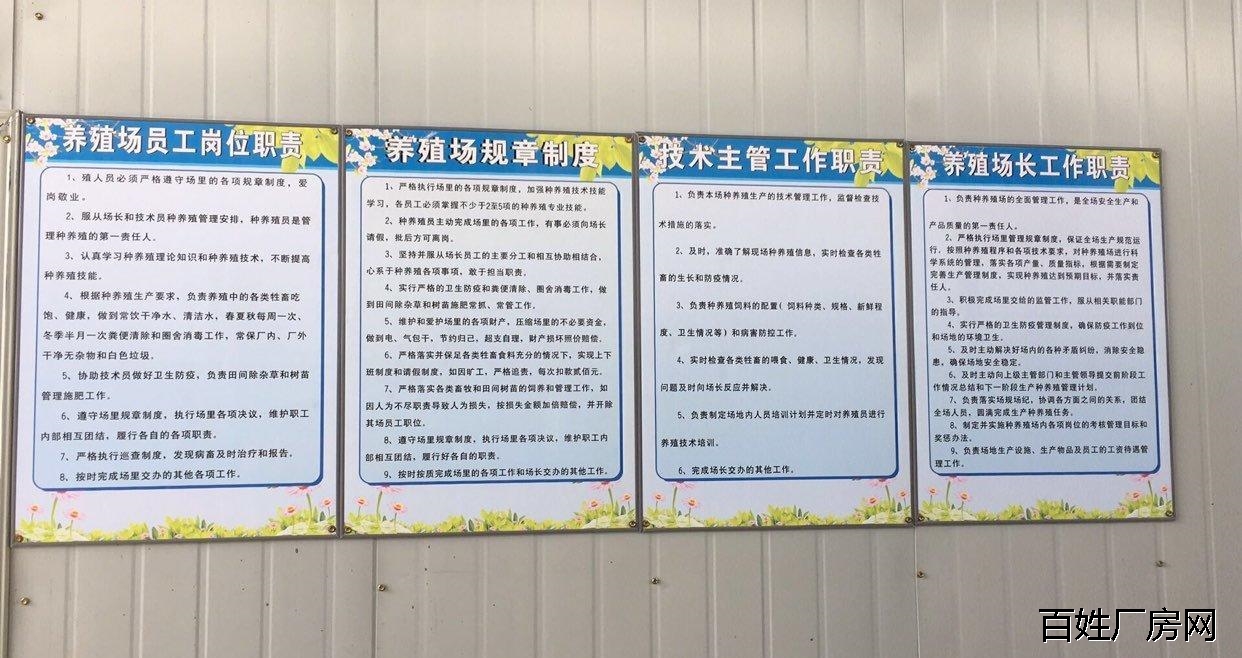 养殖场员工岗位职责
1、殖人员必须严格遵守场里的各项规章制度，爱
岗敬业。
2、服从场长和技术员种养殖管理安排，种养殖员是管
理种养殖的第一责任人。
3、认真学习种养殖理论知识和种养殖技术，不断提高
种养殖技能。
4、根据种养殖生产要求，负责养殖中的各类牲畜吃
饱、健康，做到常饮干净水、清洁水，春夏秋每周一次、
冬季半月一次粪便清除和圈舍消毒工作，常保厂内、厂外
干净无杂物和白色垃圾。
5、协助技术员做好卫生防疫，负责田间除杂草和树苗
管理施肥工作。
6、遵守场里规章制度，执行场里各项决议，维护职工
内部相互团结，履行各自的各项职责。
7、严格执行巡查制度，发现病畜及时治疗和报告。
8、按时完成场里交办的其他各项工作。
养殖场规章制度
1、严格执行场里的各项规章制度，加强种养殖技术技能
学习，各员工必须掌握不少于2至5项的种养殖专业技能。
2、种养殖员主动完成场里的各项工作，有事必须向场长
请假，批后方可离岗。
3、坚持并服从场长员工的主要分工和相互协助相结合，
心系于种养殖各项事项，敢于担当职责。
4、实行严格的卫生防疫和粪便清除、圈舍消毒工作，做
到田间除杂草和树苗施肥常抓、常管工作。
5、维护和爱护场里的各项财产，压缩场里的不必要资金，
做到电、气包干，节约归己，超支自理，财产损坏照价赔偿。
6、严格落实并保足各类牲畜食料充分的情况下，实现上下
班制度和请假制度，如因旷工，严格追责，每次扣款贰佰元。
7、严格落实各类畜牧和田间树苗的饲养和管理工作，如
因人为不尽职责导致人为损失，按损失金额加倍赔偿，并开除
其场员工职位。
8、遵守场里规章制度，执行场里各项决议，维护职工内
部相互团结，履行好各自的职责。
9、按时按质完成场里的各项工作和场长交办的其他工作。
技术主管工作职责
1、负责本场种养殖生产的技术管理工作，监督检查技
术措施的落实。
2、及时，准确了解现场种养殖信息，实时检查各类牲
畜的生长和防疫情况。
3、负责种养殖饲料的配置（饲料种类、规格、新鲜程
度、卫生情况等）和病害防控工作。
4、实时检查各类牲畜的喂食、健康、卫生情况，发现
问题及时向场长反应并解决。
5、负责制定场地内人员培训计划并定时对养殖员进行
养殖技术培训。
6、完成场长交办的其他工作。
养殖场长工作职责
1、负责种养殖场的全面管理工作，是全场安全生产和
产品质量的第一责任人。
2、严格执行场里管理规章制度，保证全场生产规范运
行，按照种养殖程序和各项技术要求，对种养殖场进行科
学系统的管理，落实各项产量、质量指标，根据需要制定
完善生产管理制度，实现种养殖达到预期目标，并落实责
任人。
3、积极完成场里交给的监管工作，服从相关职能部门
的指导。
4、实行严格的卫生防疫管理制度，确保防疫工作到位
和场地的环境卫生。
5、及时主动解决好场内的各种矛盾纠纷，消除安全隐
患，确保场地安全稳定。
6、及时主动向上级主管部门和主管领导提交前阶段工
作情况总结和下一阶段生产种养殖管理计划。
7、负责落实场规场纪，协调各方面之间的关系，团结
全场人员，圆满完成生产种养殖任务。
8、制定并实施种养殖场内各项岗位的考核管理目标和
奖惩办法。
9、负责场地生产设施、生产物品及员工的工资待遇管
理工作。
百姓厂房网